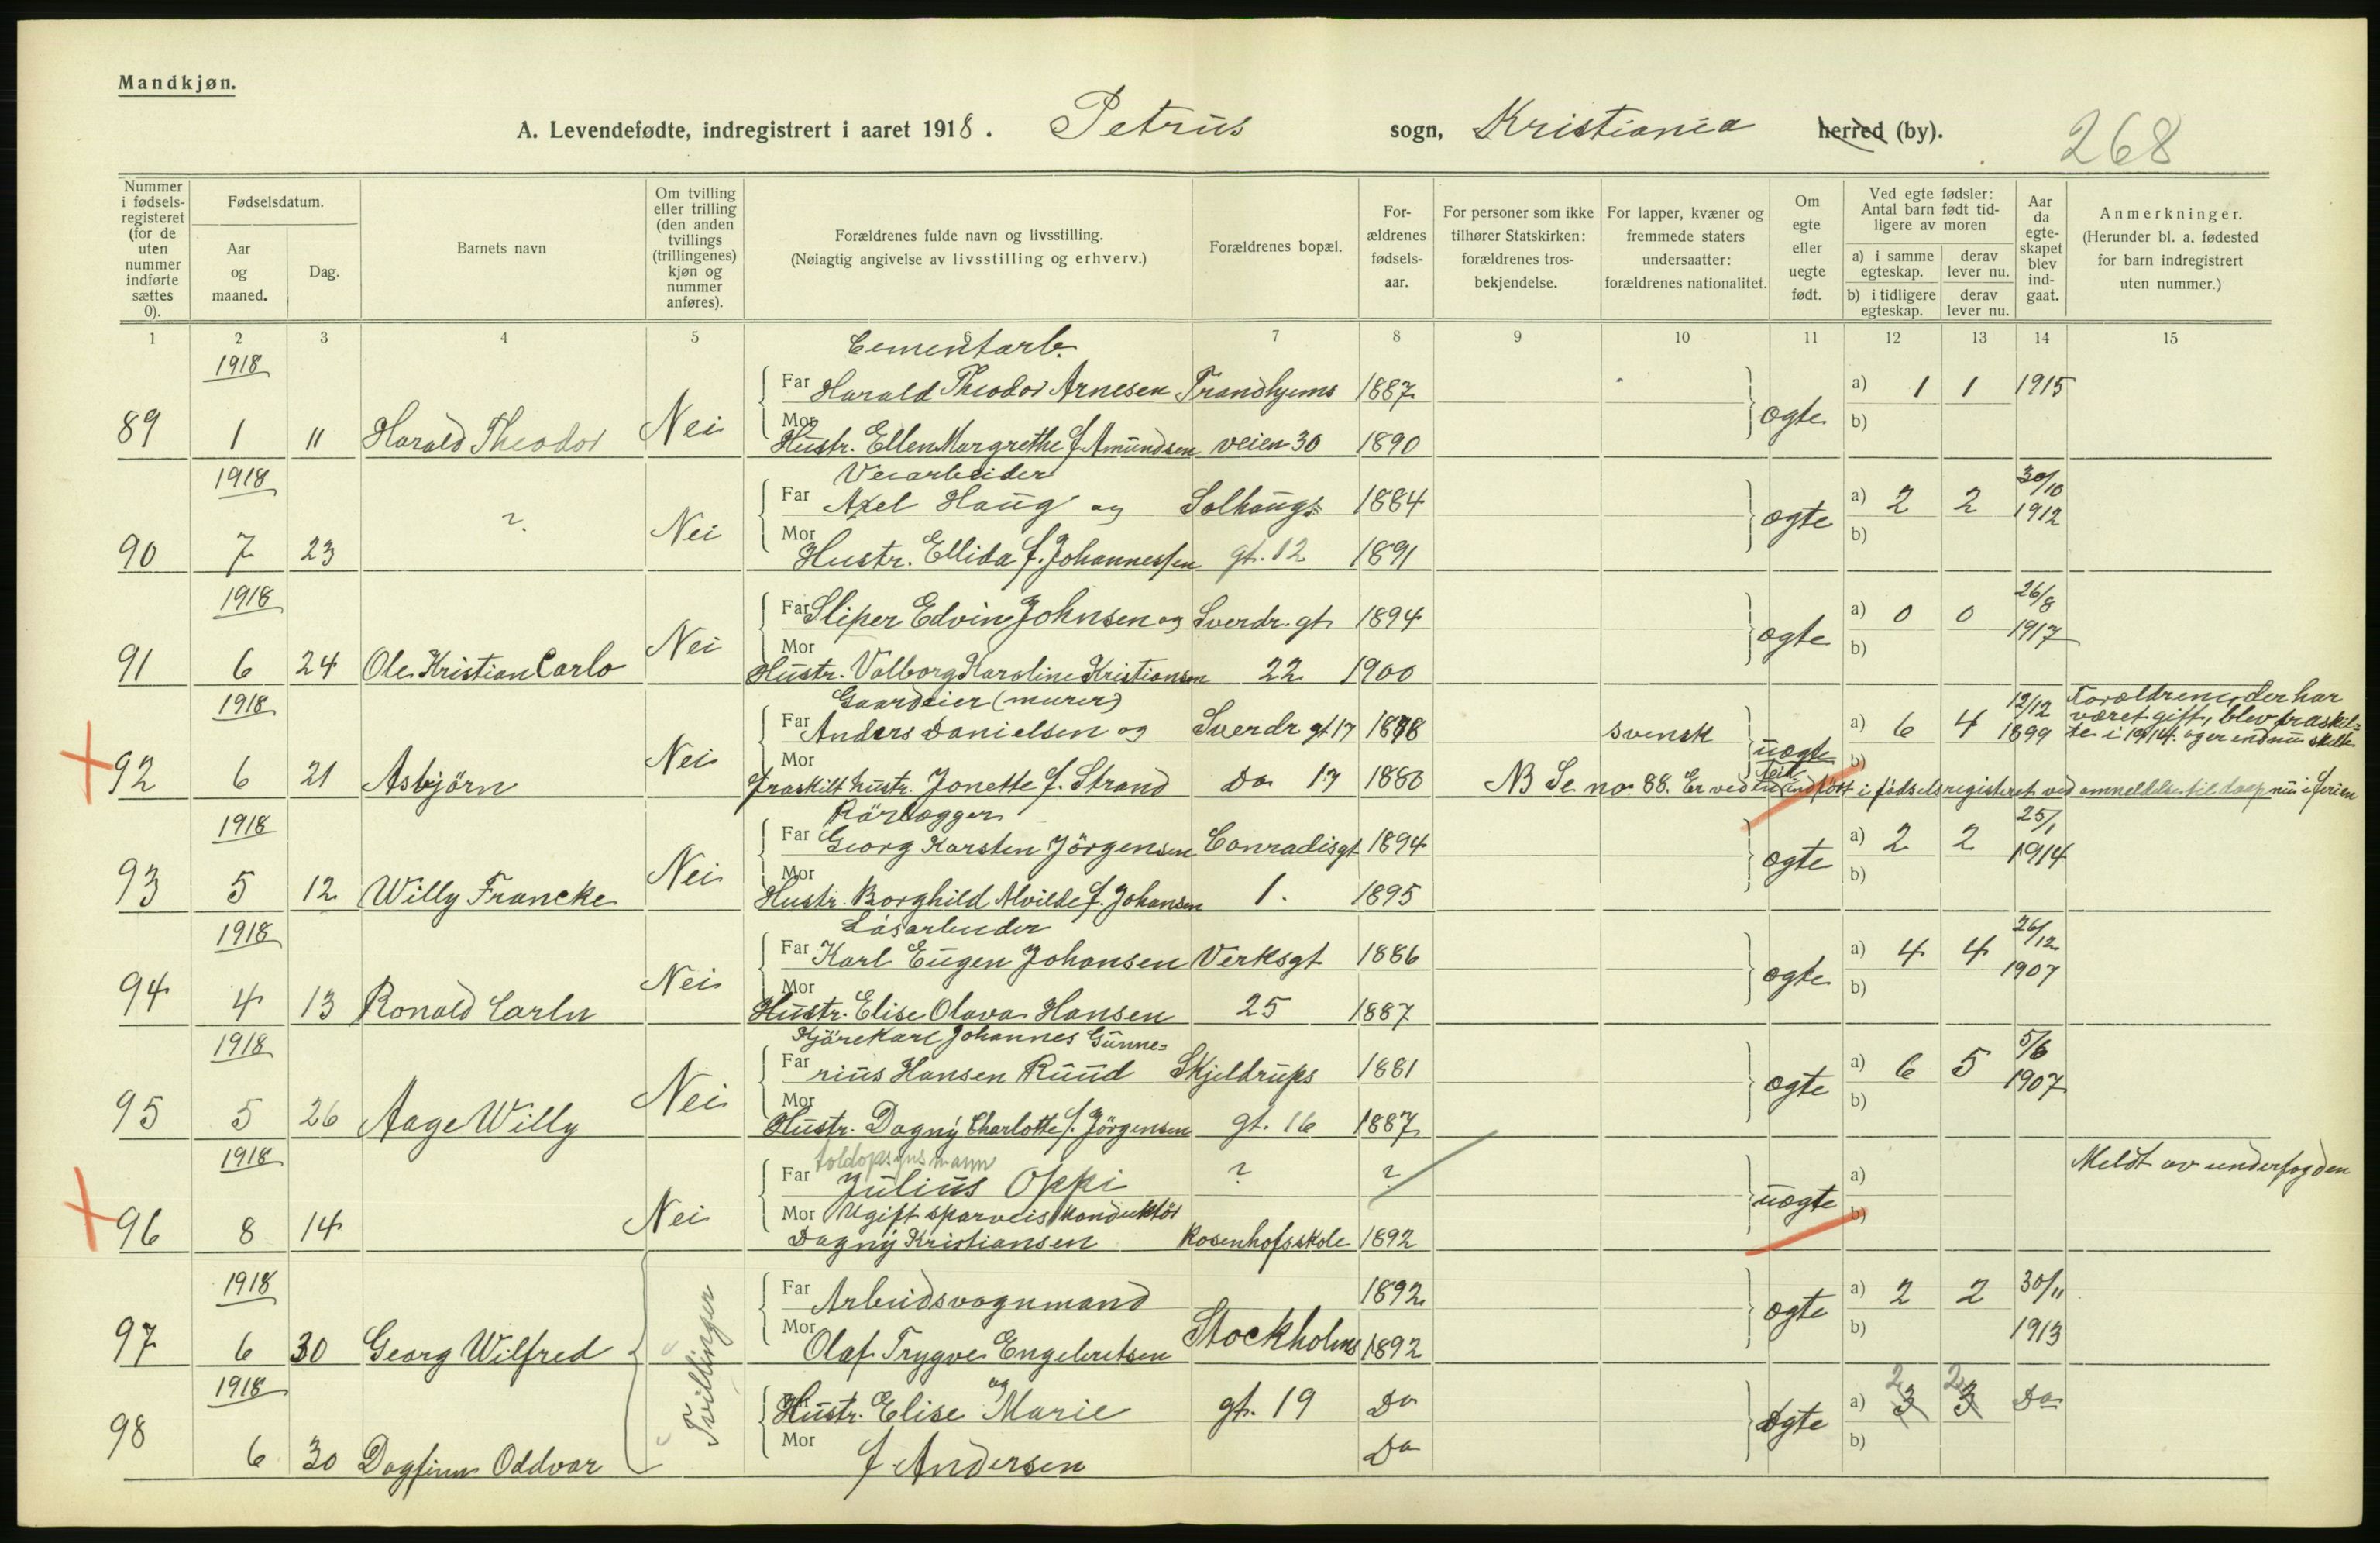 Mandkjøn.
A. Levendefødte, indregistrert i aaret 1918. Petrus sogn, Kristiania herred (by). 268
Nummer i fødselsregisteret (for de uten nummer indførte sættes 0).
Fødselsdatum.
Aar og maaned.
Dag.
Barnets navn
Om tvilling eller trilling (den anden tvillings (trillingenes) kjøn og nummer anføres).
Forældrenes fulde navn og livsstilling.
(Nøiagtig angivelse av livsstilling og erhverv.)
Forældrenes bopæl.
Forældrenes fødselsaar.
For personer som ikke tilhører Statskirken: forældrenes trosbekjendelse.
For lapper, kvæner og fremmede staters undersaatter: forældrenes nationalitet.
Om egte eller uegte født.
Ved egte fødsler: Antal barn født tidligere av moren
a) i samme egteskap. derav lever nu.
b) i tidligere egteskap. derav lever nu.
Aar da egteskapet blev indgaat.
Anmerkninger.
(Herunder bl. a. fødested for barn indregistrert uten nummer.)
1 2 3 4 5 6 7 8 9 10 11 12 13 14 15
1918 Cementarb.
Far Harald Theodor Arnesen Trondhjems 1887 a) 1 1 1915
89 1 11 Harald Theodor Nei Mor Hustr. Ellen Margrethe f. Amundsen veien 30 1890 ægte b)
1918 Veiarbeider
Far Axel Haug og Solhaugs 1884 a) 2 2 30/10 1912
90 7 23 ? Nei Mor Hustr. Ellida f. Johannessen gt. 12 1891 ægte b)
1918 Far Sliper Edvin Johnsen og Sverdr. gt 1894 a) 0 0 26/8 1917
91 6 24 Ole Kristian Carlo Nei Mor Hustr. Valborg Karoline Kristiansen 22 1900 ægte b)
1918 Gaardeier (murer)
Far Anders Danielsen og Sverdr gt 17 1878 svensk a) 6 4 12/12 1899 Forældrene, der har været gift, blev fraskilte i 1914 og er endnu skilte
92 6 21 Asbjörn Nei Mor fraskilt hustr. Jonette f. Strand Do 17 1880 uægte b)
NB Se no. 88. Er ved feil indfört i födselsregisteret ved anmeldelse til daap nu i ferien
1918 Rörlægger
Far Georg Karsten Jörgensen Conradisgt 1894 a) 2 2 25/1 1914
93 5 12 Willy Francke Nei Mor Hustr. Borghild Alvilde f. Johansen 1. 1895 ægte b)
1918 Løsarbeider
Far Karl Eugen Johansen Verksgt 1886 a) 4 4 26/12 1907
94 4 13 Ronald Carln Nei Mor Hustr. Elise Olava Hansen 25 1887 ægte b)
1918 Kjörekarl Johannes Gunne=
Far rius Hansen Ruud Skjeldrups 1881 a) 6 5 5/6 1907
95 5 26 Aage Willy Nei Mor Hustr. Dagny Charlotte f. Jörgensen gt. 16 1887 ægte b)
1918 toldopsynsmann
Far Julius Oppi ? ? a) Meldt av underfogden
96 8 14 Nei Mor Ugift sporveiskonduktör
Dagny Kristiansen Rosenhofsskole 1892 uægte b)
1918 Far Arbeidsvognmand 1892 a) 2 2 30/11 1913
97 6 30 Georg Wilfred Tvillinger Mor Olaf Trygve Engebretsen Stockholms 1892 ægte b)
1918 og
Hustr. Elise Marie gt. 19 Do a) 3 2 3 2 Do
98 6 30 Dagfinn Oddvar Mor f Andersen Do ægte b)